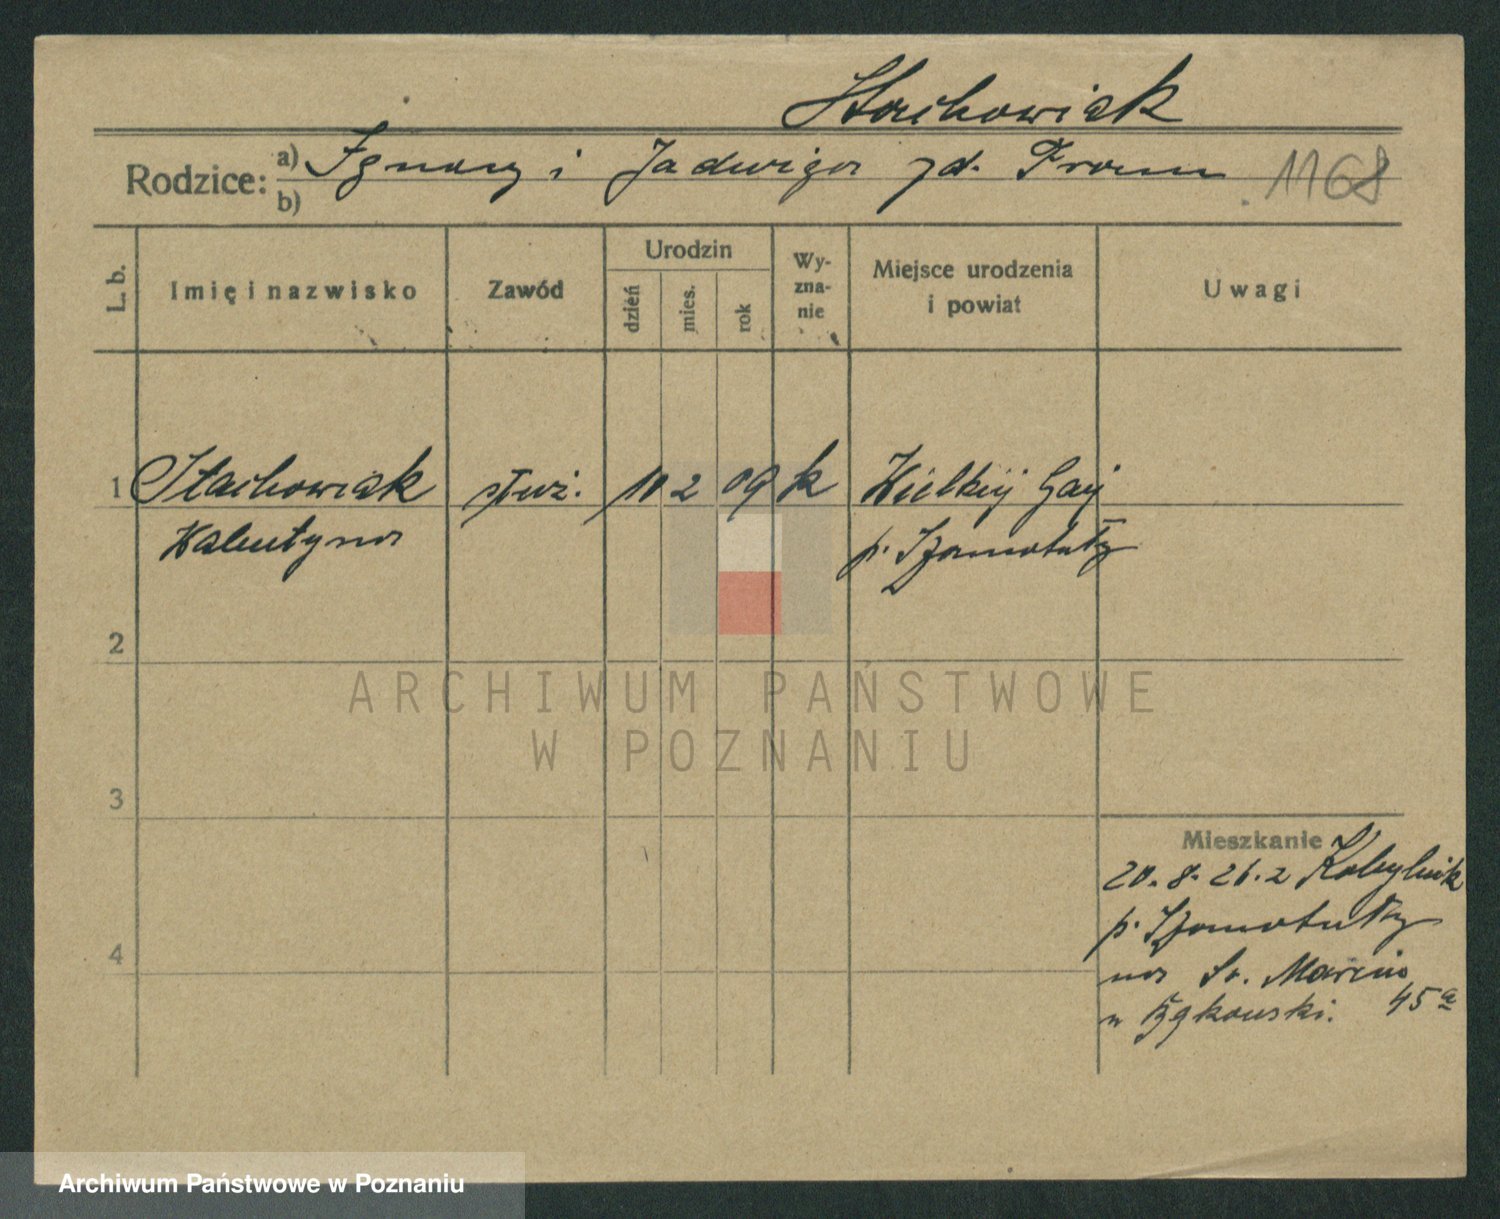 Stachowiak
Rodzice: a) Ignacy i Jadwiga zd. Fromm 1168
b)
L. b.
Imię i nazwisko
Zawód
Urodzin
dzień
mies.
rok
Wy-
zna-
nie
Miejsce urodzenia
i powiat
Uwagi
1 Stachowiak służ. 10 2 09 k Wielkij Gaj
Walentyna p. Szamotuły
2
ARCHIWUM PAŃSTWOWE
W POZNANIU
3
Mieszkanie
20.8.26. z Kobylnik
p. Szamotuły
na Św. Marcin
45a
4
Archiwum Państwowe w Poznaniu